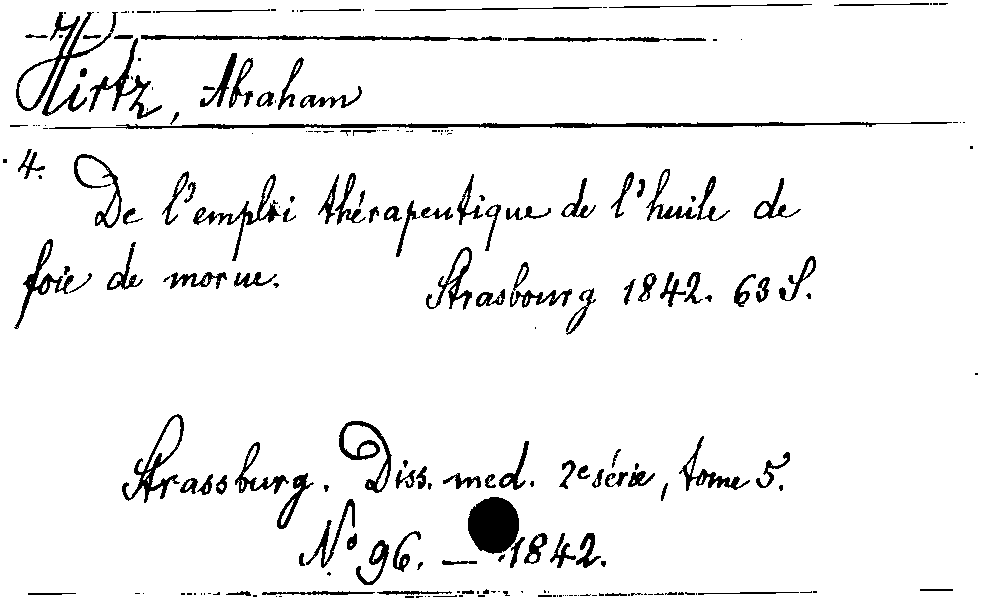 Hirtz, Abraham
4.
De l'emploi thérapeutique de l'huile de
foie de morue. Strasbourg 1842. 63 S.
Strassburg. Diss. med. 2e série, tome 5.
No 96. — 1842.